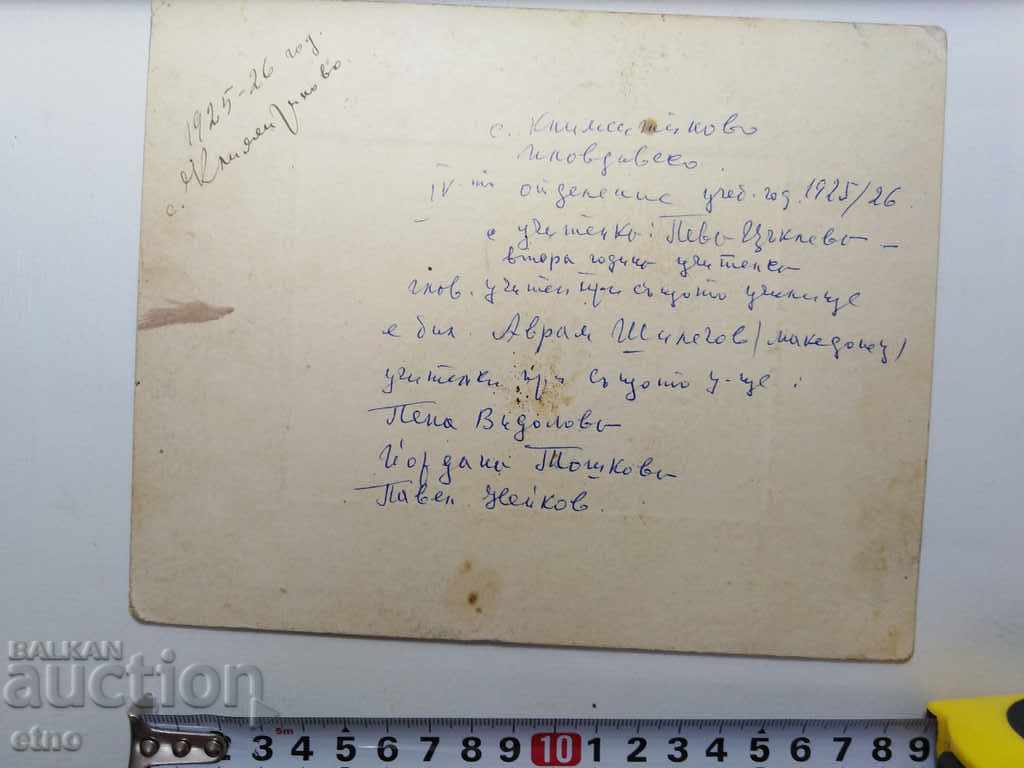 1925-26 год.
с.
с.
пловдивско.
IV-то отделение учеб. год. 1925/26
с учителка: Пева Цъклева –
втора година учителка
глав. учител при същото училище
е бил Аврам Шилегов /македонец/
учителки при същото у-ще:
Пена Видолова
Йордана Тошкова
Павел Цвейков.
BALKAN
auction
etno
2 3 4 5 6 7 8 9 10 1 2 3 4 5 6 7 8 9
5m